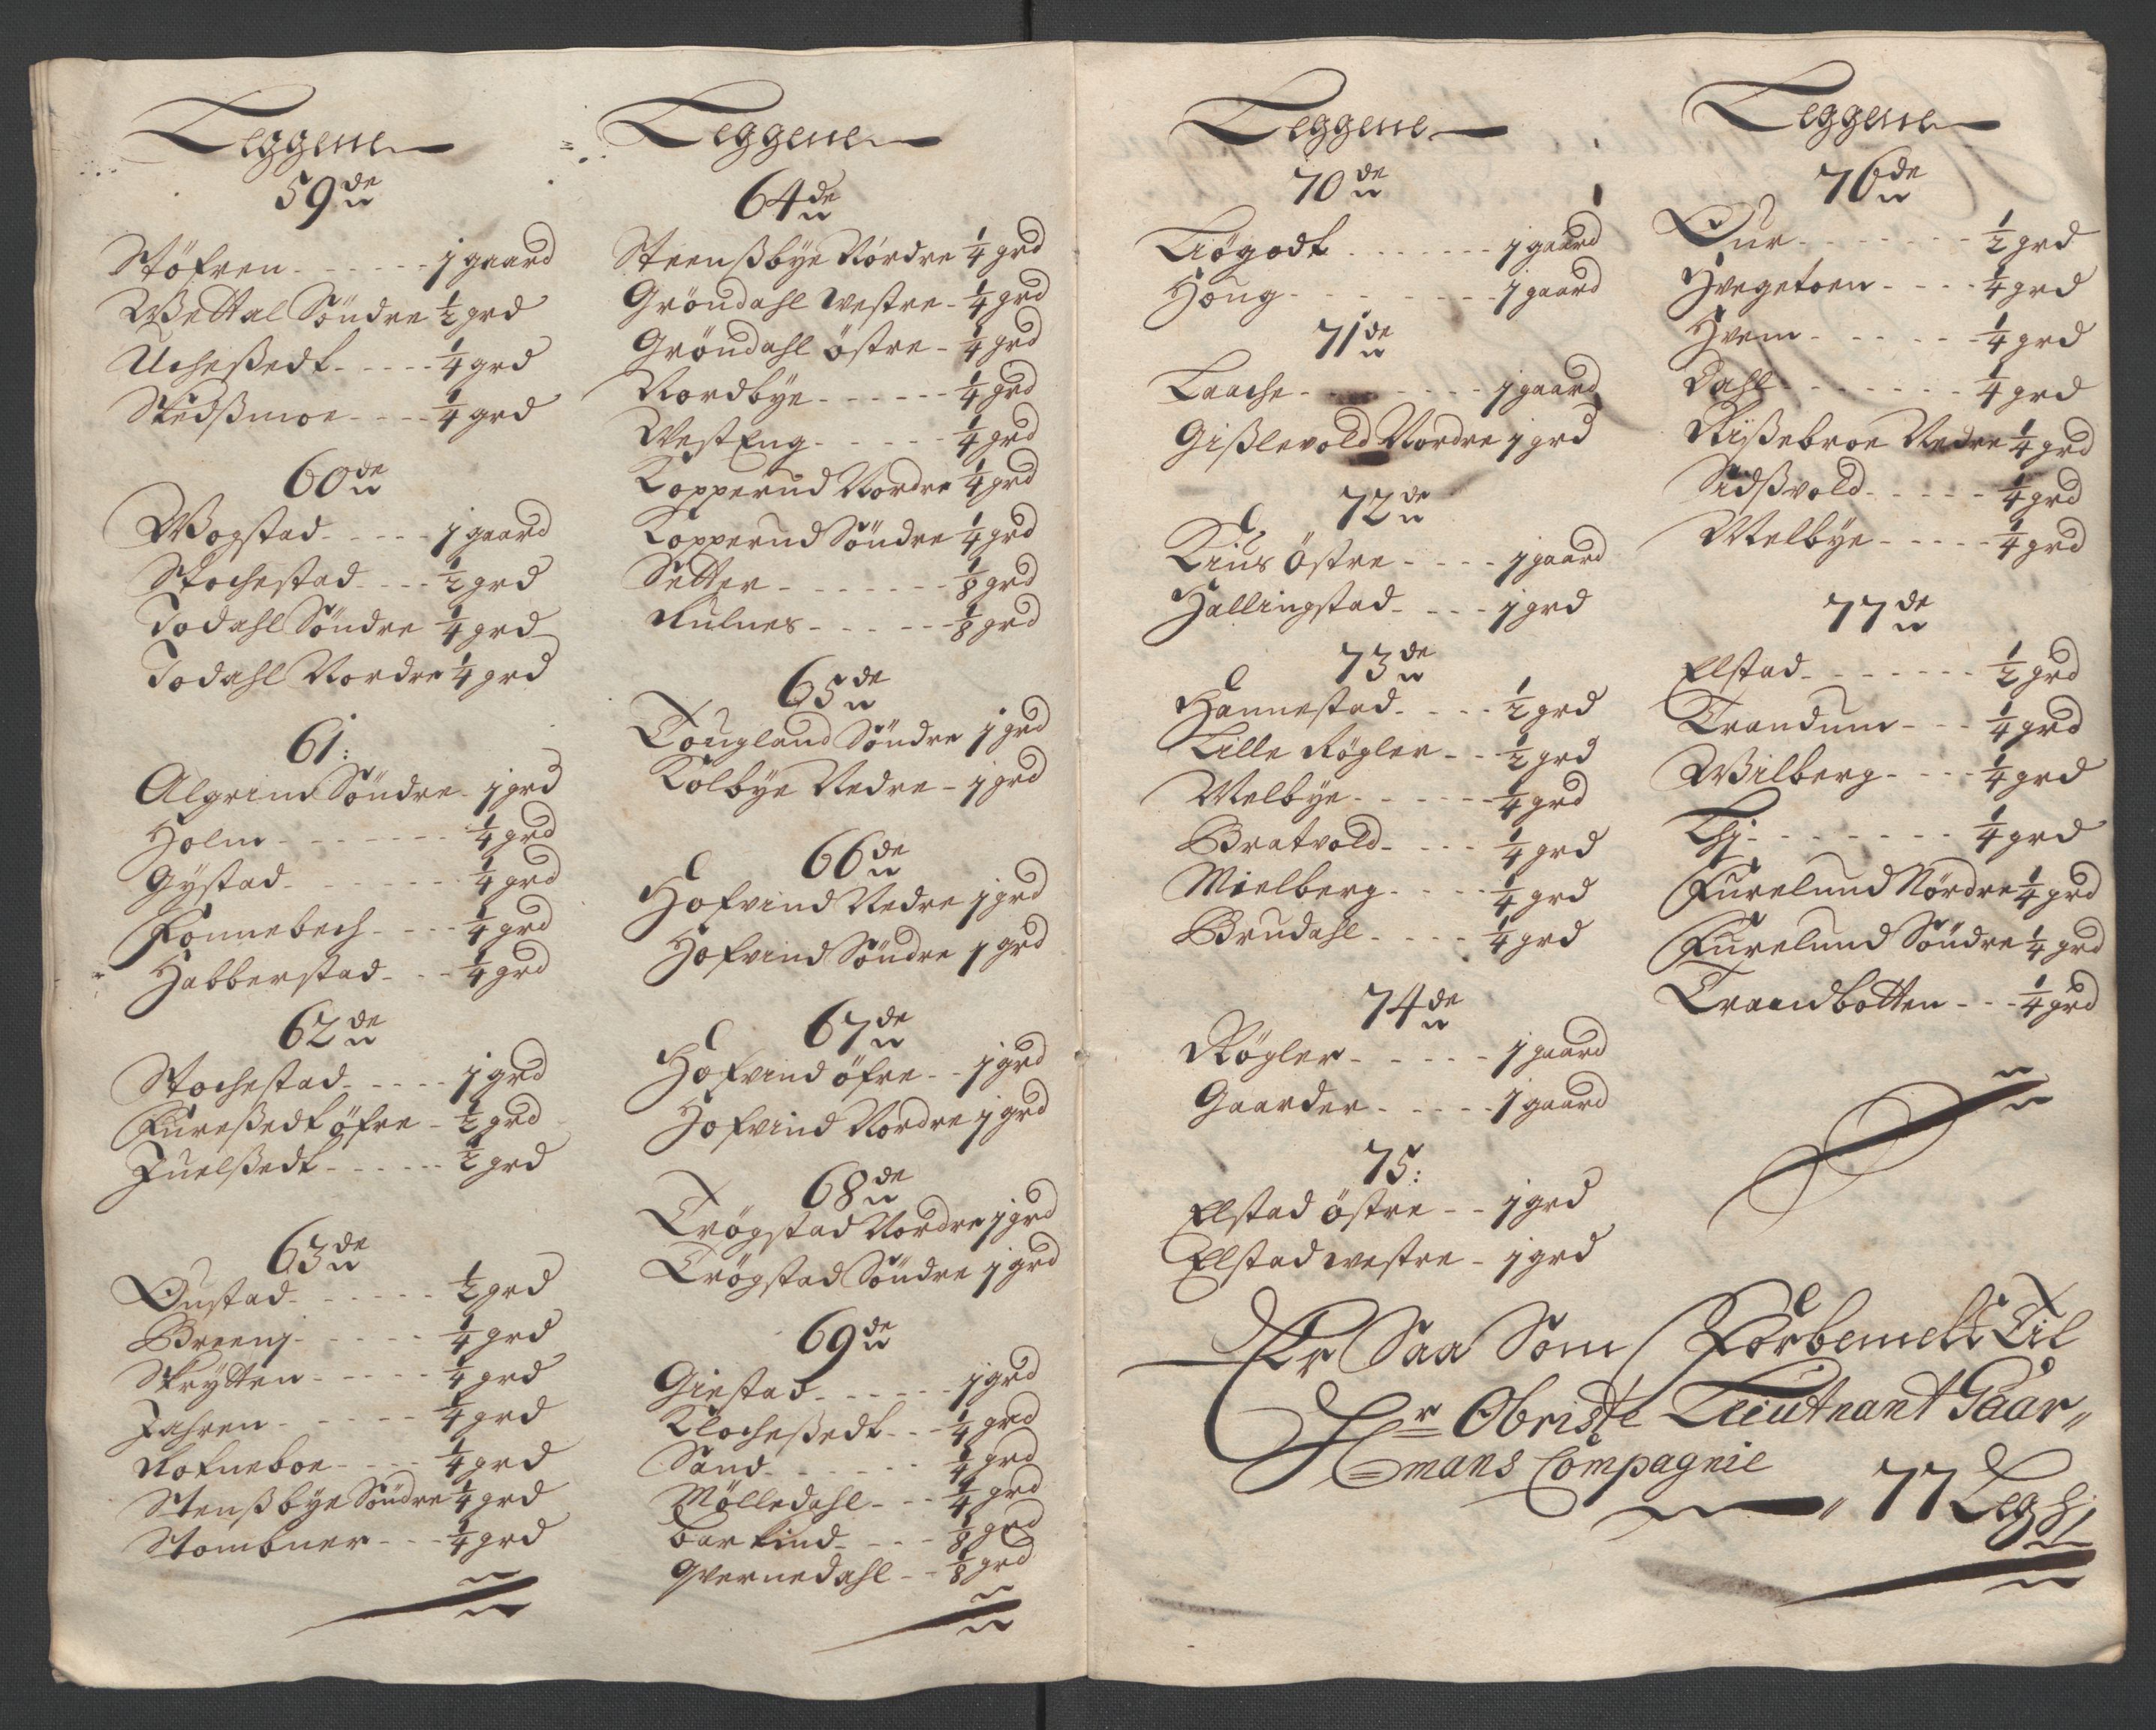 Leggene
59de
Støfren - - - - - - 1 gaard
Wettal Søndre 1/2 grd
Ucheßedt - - - - - 1/4 grd
Skedßmoe - - - - 1/4 grd
60de
Wogstad - - - - - 1 gaard
Stochestad - - - 1/2 grd
Dodahl Søndre 1/4 grd
Dodahl Nordre 1/4 grd
61:
Algrim Søndre - 1 grd
Holm - - - - - - - 1/4 grd
Gÿstad - - - - - - 1/4 grd
Fonnebech - - - - 1/4 grd
Habberstad - - - 1/4 grd
62de
Stochestad - - - - - 1 grd
Fureßedt øfre - 1/2 grd
Juelßedt - - - - - - 1/2 grd
63de
Oustad - - - - - - 1/2 grd
Breenj - - - - - - 1/4 grd
Skrÿtten - - - - - 1/4 grd
Jahren - - - - - - 1/4 grd
Rofneboe - - - - 1/4 grd
Stenßbÿe Søndre 1/4 grd
Stombner - - - 1/4 grd
Leggene
64de
Steenßbÿe Nordre 1/4 grd
Grøndahl westre - 1/4 grd
Grøndahl østre - 1/4 grd
Nordbÿe - - - - - - 1/4 grd
WestEng - - - - - 1/4 grd
Kopperud Nordre 1/4 grd
Kopperud Søndre 1/4 grd
Setter - - - - - - - 1/8 grd
Rulnes - - - - - - 1/8 grd
65de
Tougland Søndre 1 grd
Kolbÿe Nedre - 1 grd
66de
Hofvind Nedre 1 grd
Hofvind Søndre 1 grd
67de
Hofvind øfre - - 1 grd
Hofvind Nordre 1 grd
68de
Trøgstad Nordre 1 grd
Trøgstad Søndre 1 grd
69de
Giestad - - - - - - 1 grd
Klocheßedt - - - 1/4 grd
Sand - - - - - - 1/4 grd
Mølledahl - - - 1/4 grd
Barkind - - - - 1/8 grd
Qvernedahl - - 1/8 grd
Leggene
70de
Liøgodt - - - - - - 1 gaard
Houg - - - - - - - - 1 gaard
71de
Laache - - - - - - - - 1 gaard
Gißlevold Nordre 1 grd
72de
Kius Østre - - - - 1 gaard
Hallingstad - - - - 1 grd
73de
Hannestad - - - - 1/2 grd
Lille Røgler - - 1/2 grd
Melbÿe - - - - - - 1/4 grd
Bratvold - - - - 1/4 grd
Mielberg - - - - 1/4 grd
Brudahl - - - - 1/4 grd
74de
Røgler - - - - - 1 gaard
Gaarder - - - - - 1 gaard
75:
Elstad østre - - 1 grd
Elstad westre - 1 grd
Leggene
76de
Our - - - - - - - 1/2 grd
Hvegetoen - - - - 1/4 grd
Hvem - - - - - - 1/4 grd
Dahl - - - - - - - 1/4 grd
Rißebroe Nedre 1/4 grd
Sidßvold - - - - - 1/4 grd
Melbÿe - - - - - 1/4 grd
77de
Elstad - - - - - - - 1/2 grd
Trandum - - - 1/4 grd
Wilberg - - - - 1/4 grd
Thj - - - - - - - - 1/4 grd
Furelund Nordre 1/4 grd
Furelund Søndre 1/4 grd
Traandbotten - - - 1/4 grd
Er Saa Som Forbemelt Til
Hr Obriste Leiutnant Gaar„
=mans Compagnie
„ 77 Legh